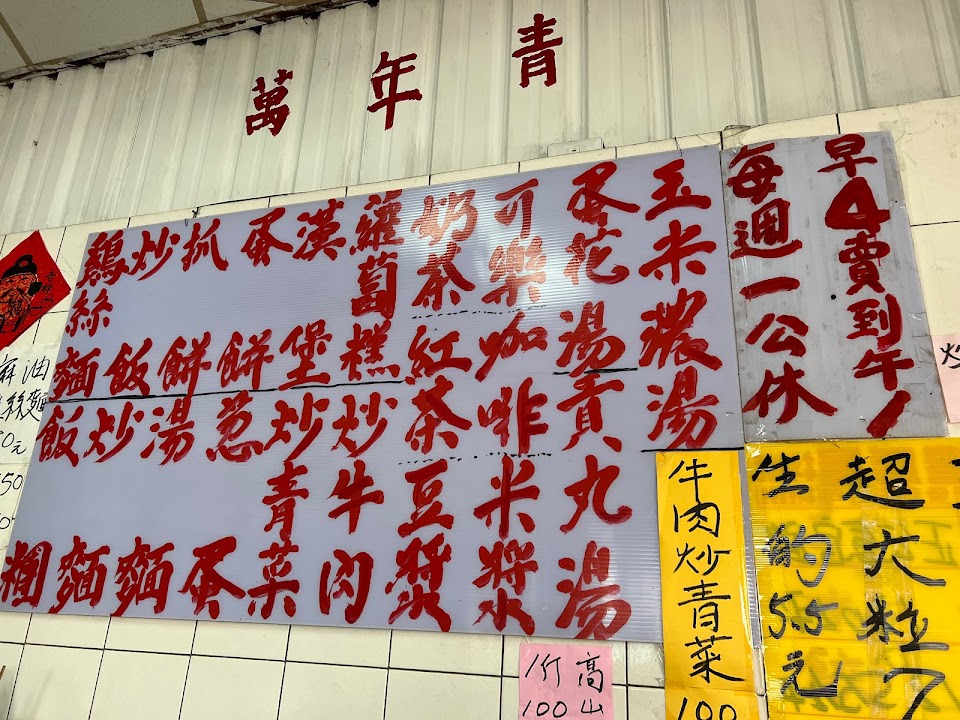 萬年青
早4賣到午1
每週一公休
玉米濃湯
蛋花湯
貢丸湯
可樂
咖啡
米漿
奶茶
紅茶
豆漿
蘿蔔糕
炒牛肉
漢堡
炒青菜
蛋餅
葱蛋
抓餅
湯麵
炒飯
炒麵
鷄絲麵
飯糰
超大粒
生的5.5元
牛肉炒青菜
100
高山
1斤100